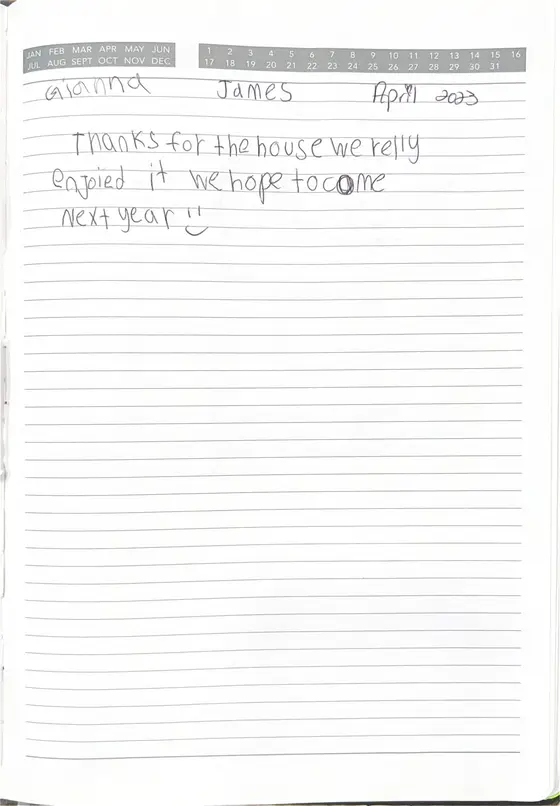 JAN FEB MAR APR MAY JUN 1 2 3 4 5 6 7 8 9 10 11 12 13 14 15 16
JUL AUG SEPT OCT NOV DEC 17 18 19 20 21 22 23 24 25 26 27 28 29 30 31
Gianna James April 2023
Thanks for the house we relly
enjoied it we hope to come
Next year